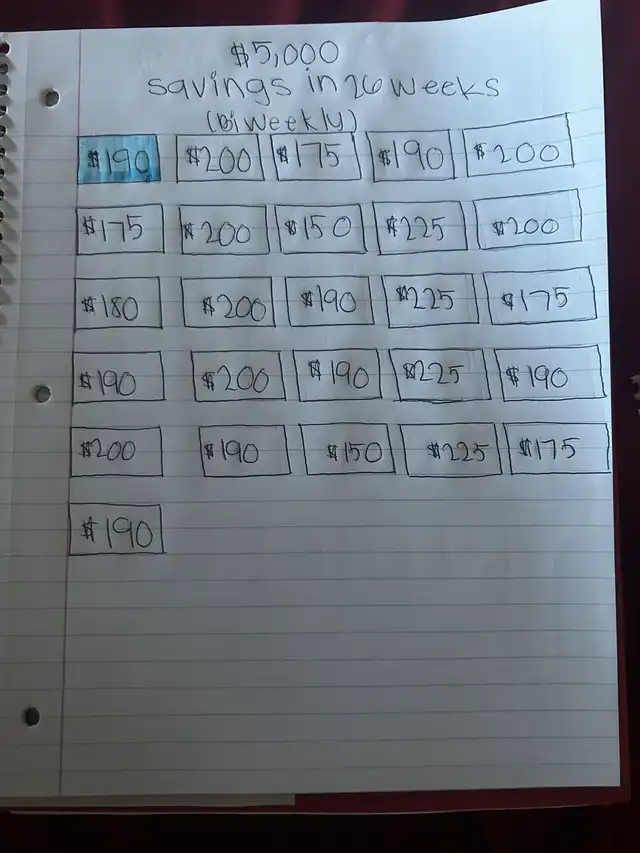 $5,000
savings in 26 weeks
(Bi weekly)
$190 $200 $175 $190 $200
$175 $200 $150 $225 $200
$180 $200 $190 $225 $175
$190 $200 $190 $225 $190
$200 $190 $150 $225 $175
$190